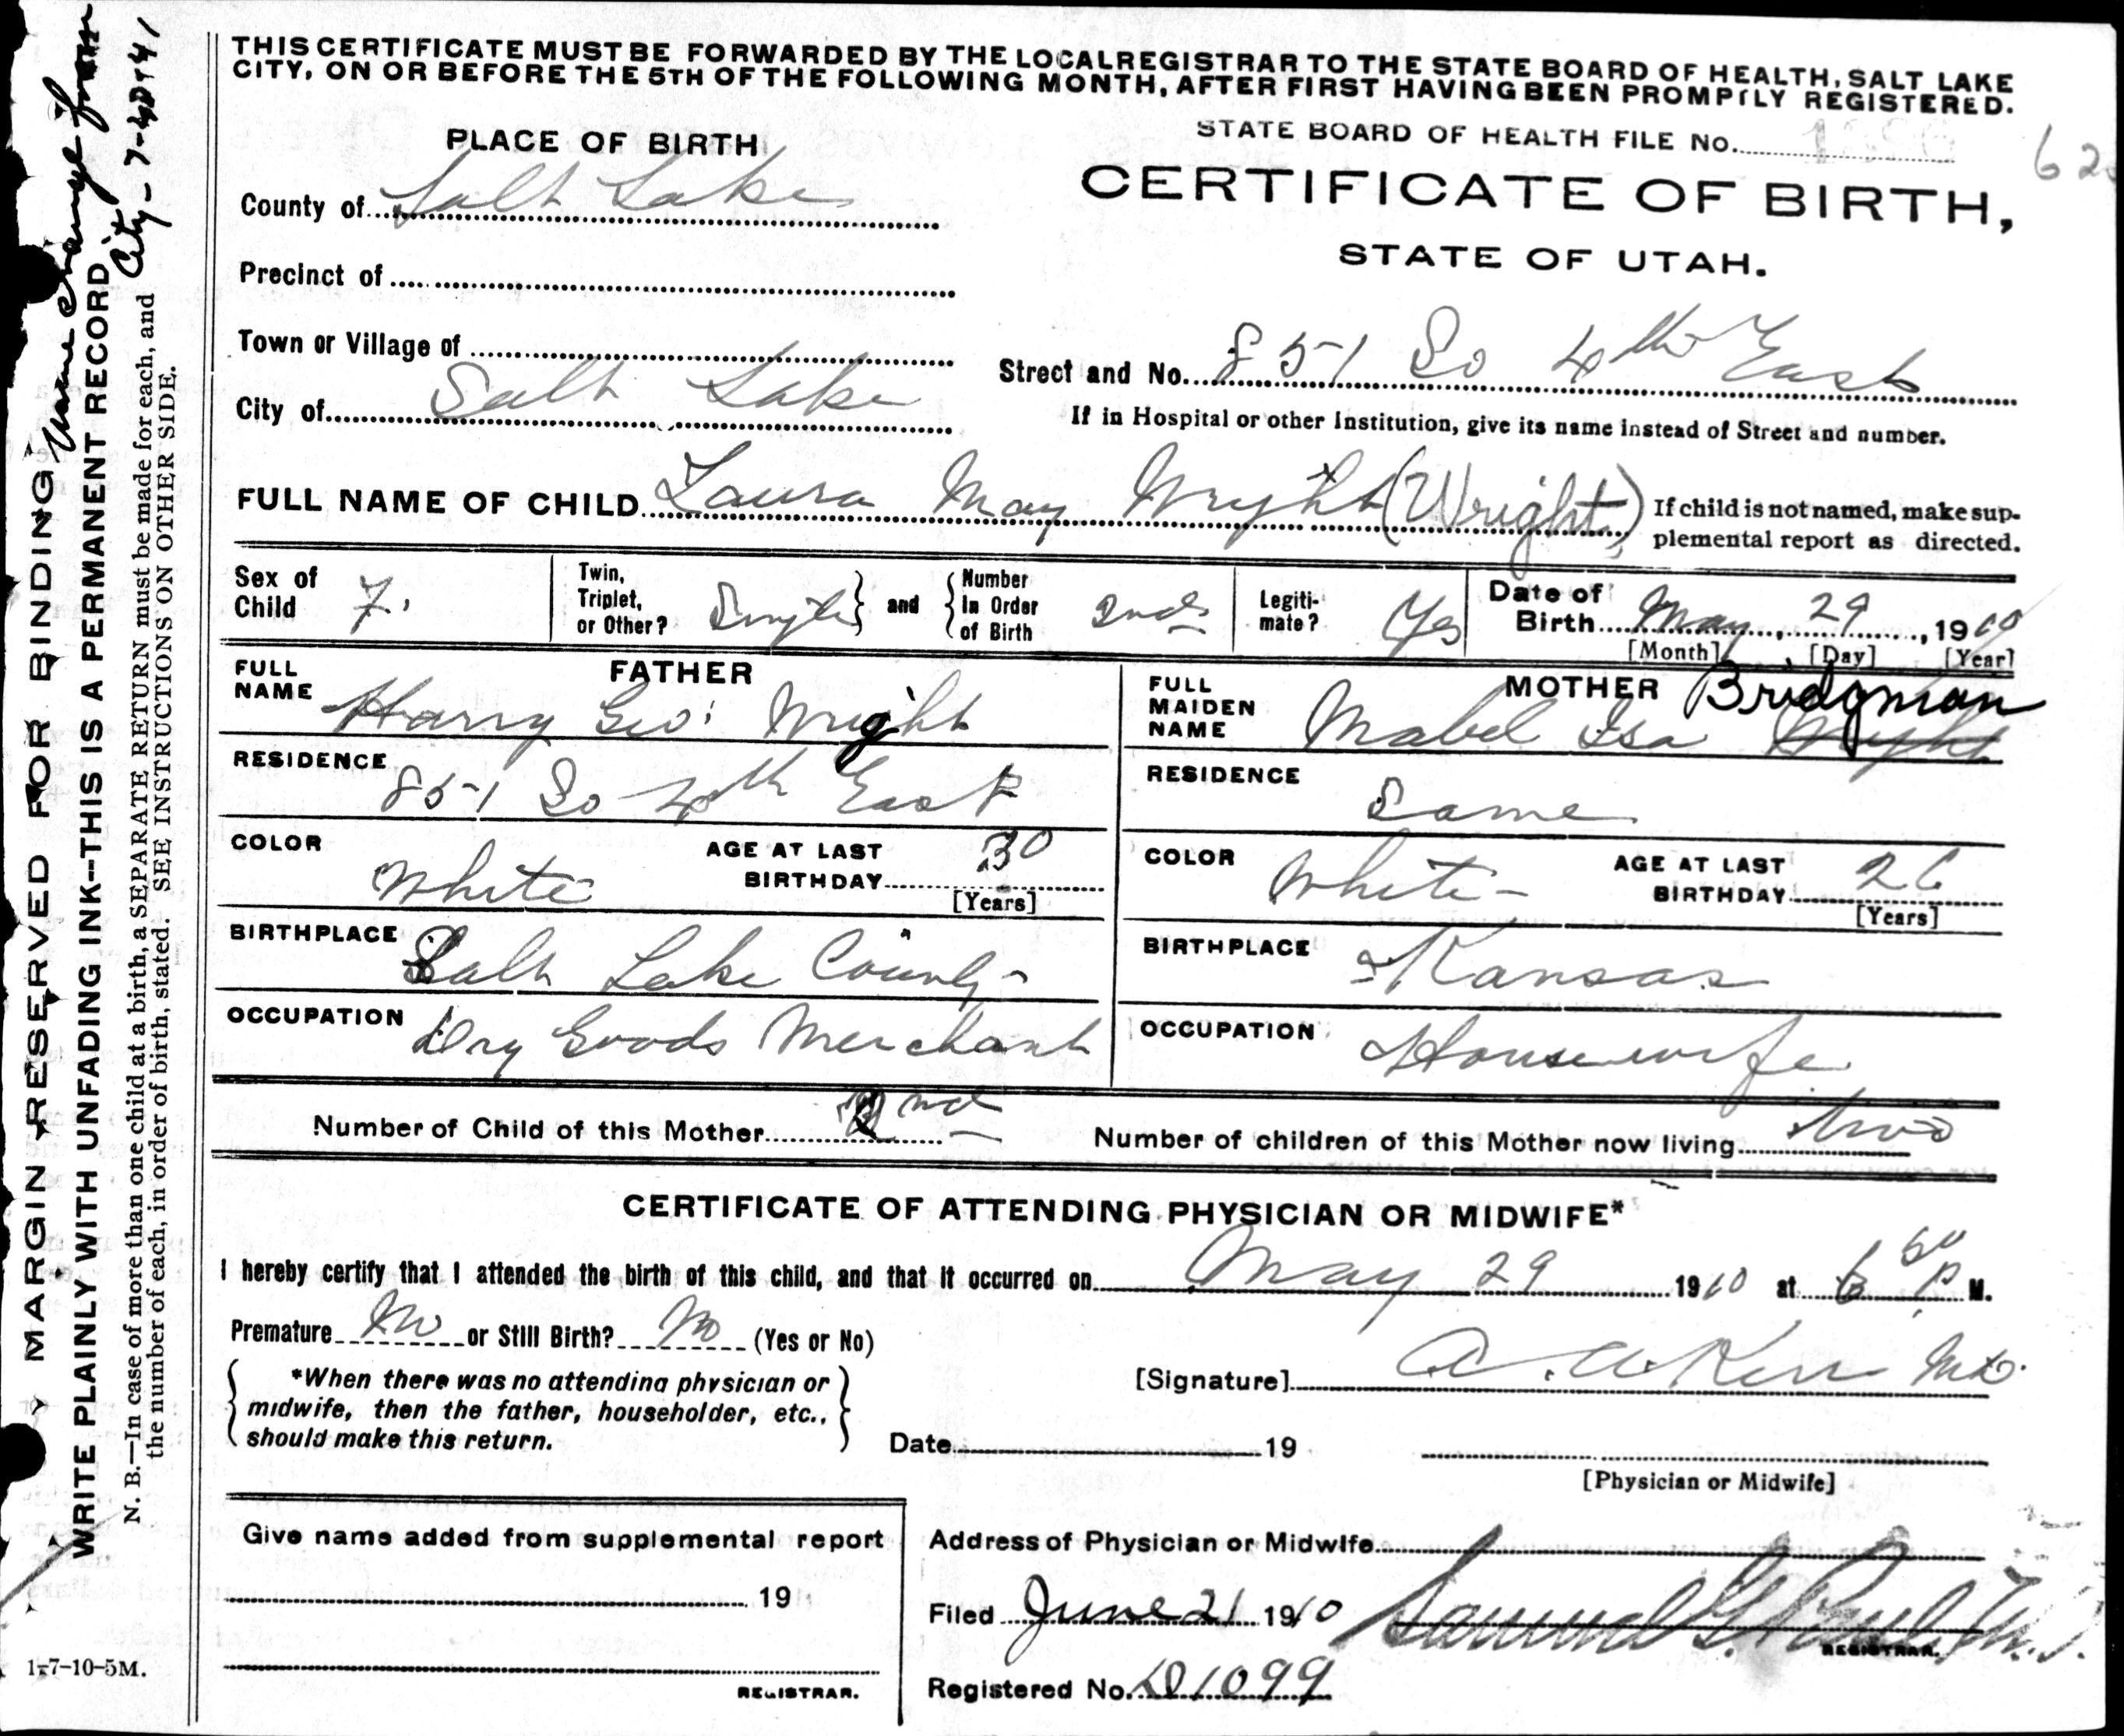 THIS CERTIFICATE MUST BE FORWARDED BY THE LOCAL REGISTRAR TO THE STATE BOARD OF HEALTH, SALT LAKE
CITY, ON OR BEFORE THE 5TH OF THE FOLLOWING MONTH, AFTER FIRST HAVING BEEN PROMPTLY REGISTERED.
PLACE OF BIRTH
STATE BOARD OF HEALTH FILE No.
62
County of Salt Lake
CERTIFICATE OF BIRTH,
STATE OF UTAH.
Precinct of
Town or Village of
Street and No. 851 So 4th East
City of Salt Lake
If in Hospital or other Institution, give its name instead of Street and number.
FULL NAME OF CHILD Laura May Wryht (Wright)
If child is not named, make sup-
plemental report as directed.
Sex of Child F.
Twin, Triplet, or Other? Single
and
Number in Order of Birth 2nd
Legiti-mate? Yes
Date of Birth May, 29, 1910
[Month] [Day] [Year]
FATHER
FULL NAME Harry Geo. Wright
RESIDENCE 851 So 4th East
COLOR White
AGE AT LAST BIRTHDAY 30
[Years]
BIRTHPLACE Salt Lake County
OCCUPATION Dry Goods Merchant
MOTHER
FULL MAIDEN NAME Mabel Isa Wryht Bridgman
RESIDENCE Same
COLOR White
AGE AT LAST BIRTHDAY 26
[Years]
BIRTHPLACE Kansas
OCCUPATION Housewife
Number of Child of this Mother 2nd
Number of children of this Mother now living two
CERTIFICATE OF ATTENDING PHYSICIAN OR MIDWIFE*
I hereby certify that I attended the birth of this child, and that it occurred on May 29 1910 at 6 50 P. M.
Premature No or Still Birth? No (Yes or No)
*When there was no attending physician or
midwife, then the father, householder, etc.,
should make this return.
[Signature] A. A. Kerr MD.
Date 19
[Physician or Midwife]
Give name added from supplemental report
19
REGISTRAR.
Address of Physician or Midwife
Filed June 21 1910 Samuel G. Paul M.D.
REGISTRAR.
Registered No. D1099
1-7-10-5M.
MARGIN RESERVED FOR BINDING
WRITE PLAINLY WITH UNFADING INK--THIS IS A PERMANENT RECORD
N. B.—In case of more than one child at a birth, a SEPARATE RETURN must be made for each, and
the number of each, in order of birth, stated. SEE INSTRUCTIONS ON OTHER SIDE.
Name change from
City - 7-